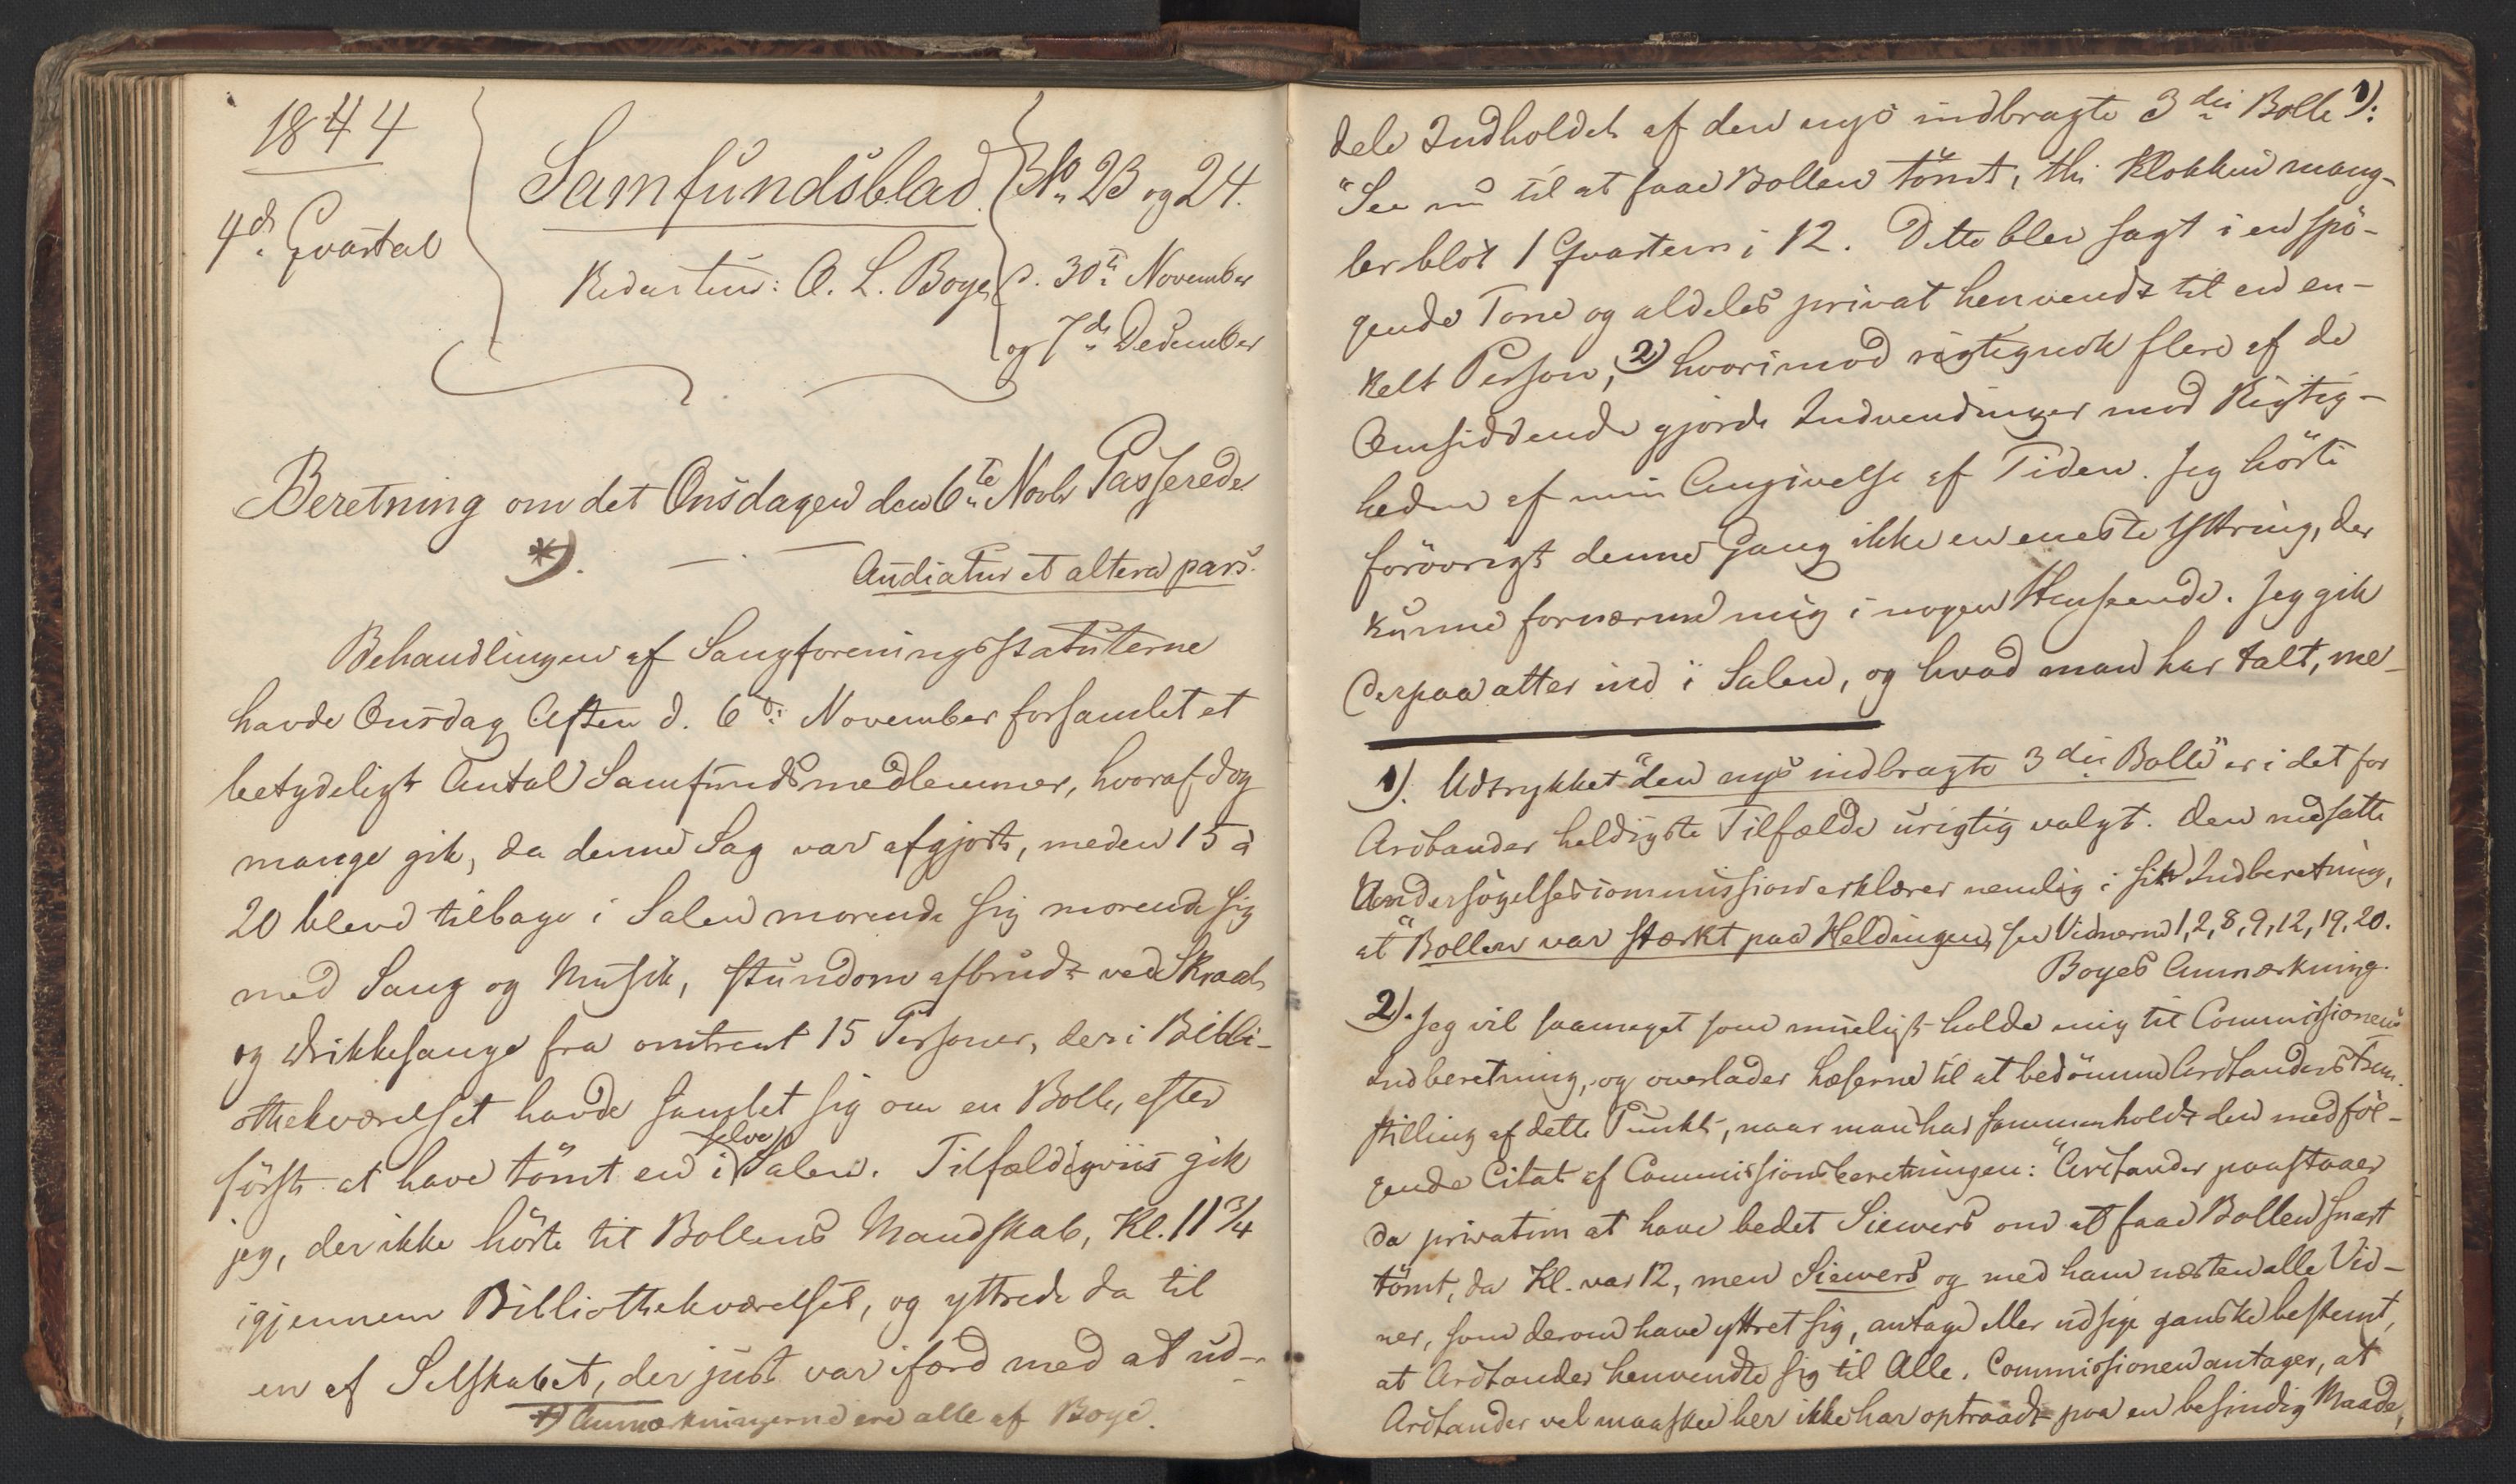 1844
4de Qvartal
Samfundsblad
No 23 og 24.
Redacteur: O. L. Boye
d. 30te November
og 7de December
Beretning om det Onsdagen den 6te Novbr Passerede
*).
Audiatur et altera pars.
Behandlingen af Sangforeningsstatuterne
havde Onsdag Aften d. 6te November forsamlet et
betydeligt Antal Samfundsmedlemmer, hvoraf dog
mange gik, da denne Sag var afgjort, meden 15 à
20 bleve tilbage i Salen morende sig morende sig
med Sang og Musik, stundom afbrudt ved Skraal
og Drikkesange fra omtrent 15 Personer, der i Bibli-
othekværelset havde samlet sig om en Bolle, efter
först at have tömt en i selve Salen. Tilfældigviis gik
jeg, der ikke hörte til Bollens Mandskab, Kl. 11 3/4
igjennem Bibliothekværelset, og yttrede da til
en af Selskabet, der just var ifærd med at ud-
*) Anmærkningerne ere alle af Boye.
dele Indholdet af den nys indbragte 3die Bolle 1):
"See nu til at faae Bollen tömt, thi Klokken mang-
ler blot 1 Qvarteer i 12. Dette blev sagt i en spö-
gende Tone og aldeles privat henvendt til en en-
kelt Person, 2) hvorimod rigtignok flere af de
Omsiddende gjorde Indvendinger mod Rigtig-
heden af min Angivelse af Tiden. Jeg hörte
forövrigt denne Gang ikke en eneste Yttring, der
kunne fornærme mig i nogen Henseende. Jeg gik
derpaa atter ind i Salen, og hvad man har talt, me-
1). Udtrykket "den nys indbragte 3die Bolle" er i det for
Arctander heldigste Tilfælde urigtig valgt. Den nedsatte
Undersögelsescommission erklærer nemlig i sin Indberetning,
at "Bollen var stærkt paa Heldingen, see Vidnerne 1, 2, 8, 9, 12, 19, 20.
Boyes Anmærkning.
2). Jeg vil saameget som mueligt holde mig til Commissionens
Indberetning, og overlader Læserne til at bedömme Arctanders Frem-
stilling af dette Punkt, naar man har sammenholdt den med föl-
gende Citat af Commissionsberetningen: "Arctander paastaaer
da privatim at have bedet Siewers om at faae Bollen snart
tömt, da Kl. var 12, men Siewers og med ham næsten alle Vid-
ner, som derom have yttret sig, antage eller udsige ganske bestemt,
at Arctander henvendte sig til Alle. Commissionen antager, at
Arctander vel maaskee her ikke har optraadt paa en besindig Maade,